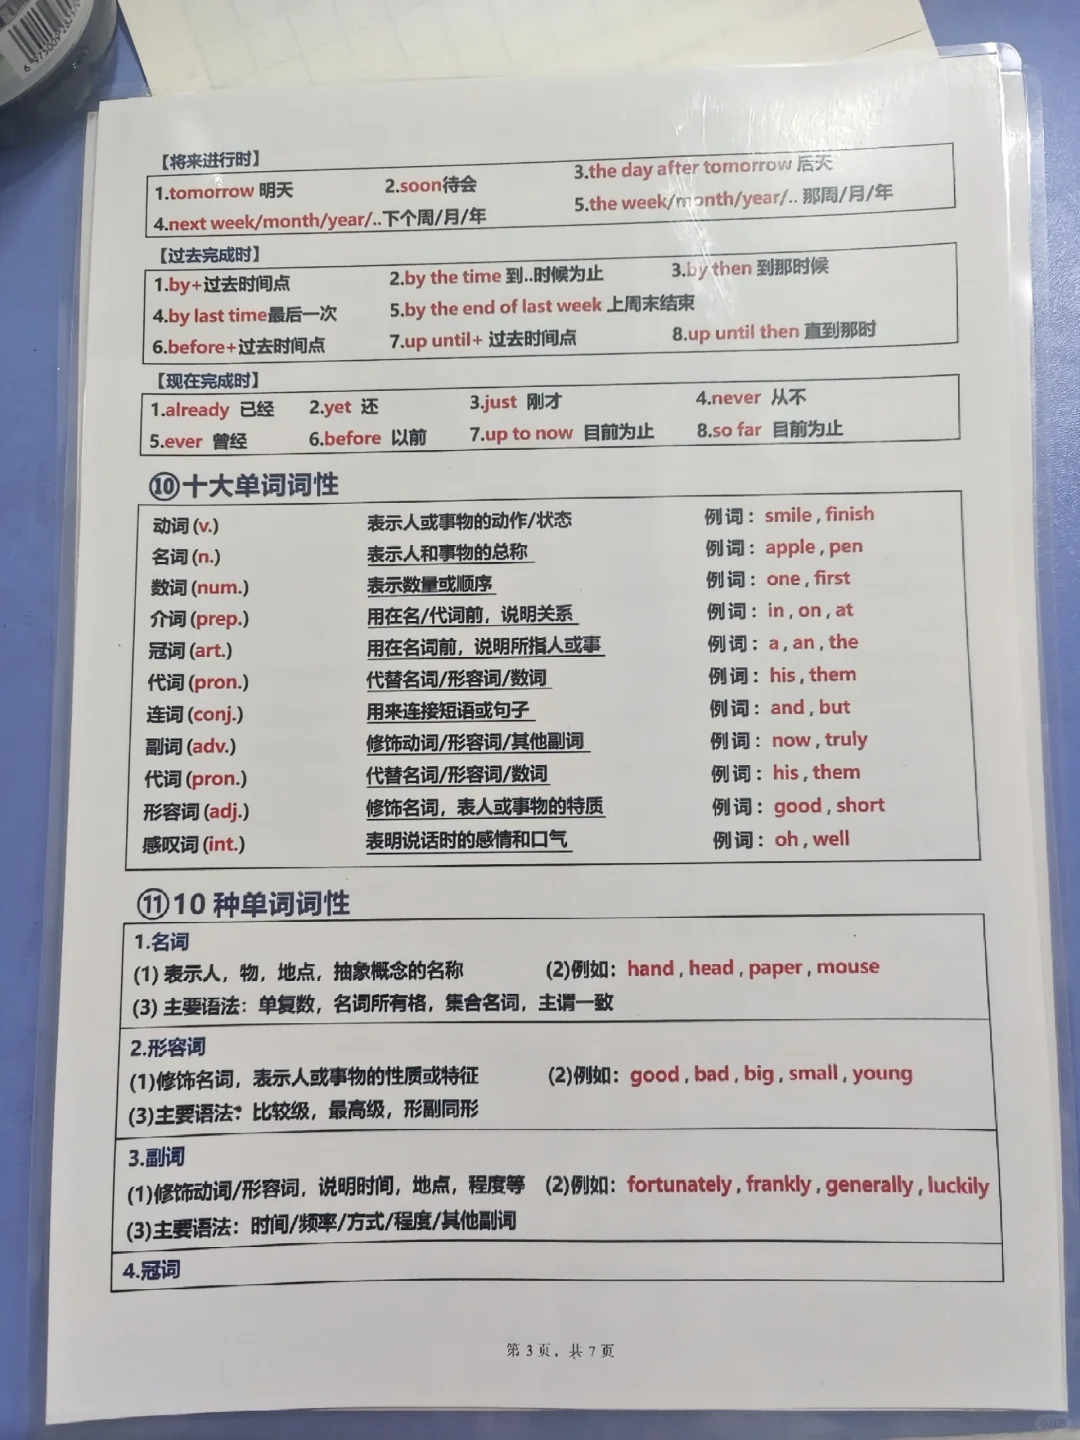 6 975009 26357
【将来进行时】
1.tomorrow 明天 2.soon待会 3.the day after tomorrow 后天
4.next week/month/year/..下个周/月/年 5.the week/month/year/.. 那周/月/年
【过去完成时】
1.by+过去时间点 2.by the time 到..时候为止 3.by then 到那时候
4.by last time最后一次 5.by the end of last week 上周末结束
6.before+过去时间点 7.up until+ 过去时间点 8.up until then 直到那时
【现在完成时】
1.already 已经 2.yet 还 3.just 刚才 4.never 从不
5.ever 曾经 6.before 以前 7.up to now 目前为止 8.so far 目前为止
⑩十大单词词性
动词(v.) 表示人或事物的动作/状态 例词：smile , finish
名词(n.) 表示人和事物的总称 例词：apple , pen
数词(num.) 表示数量或顺序 例词：one , first
介词(prep.) 用在名/代词前，说明关系 例词：in , on , at
冠词(art.) 用在名词前，说明所指人或事 例词：a , an , the
代词(pron.) 代替名词/形容词/数词 例词：his , them
连词(conj.) 用来连接短语或句子 例词：and , but
副词(adv.) 修饰动词/形容词/其他副词 例词：now , truly
代词(pron.) 代替名词/形容词/数词 例词：his , them
形容词(adj.) 修饰名词，表人或事物的特质 例词：good , short
感叹词(int.) 表明说话时的感情和口气 例词：oh , well
⑪10 种单词词性
1.名词
(1) 表示人，物，地点，抽象概念的名称 (2)例如：hand , head , paper , mouse
(3) 主要语法：单复数，名词所有格，集合名词，主谓一致
2.形容词
(1)修饰名词，表示人或事物的性质或特征 (2)例如：good , bad , big , small , young
(3)主要语法：比较级，最高级，形副同形
3.副词
(1)修饰动词/形容词，说明时间，地点，程度等 (2)例如：fortunately , frankly , generally , luckily
(3)主要语法：时间/频率/方式/程度/其他副词
4.冠词
第 3 页，共 7 页
小红书